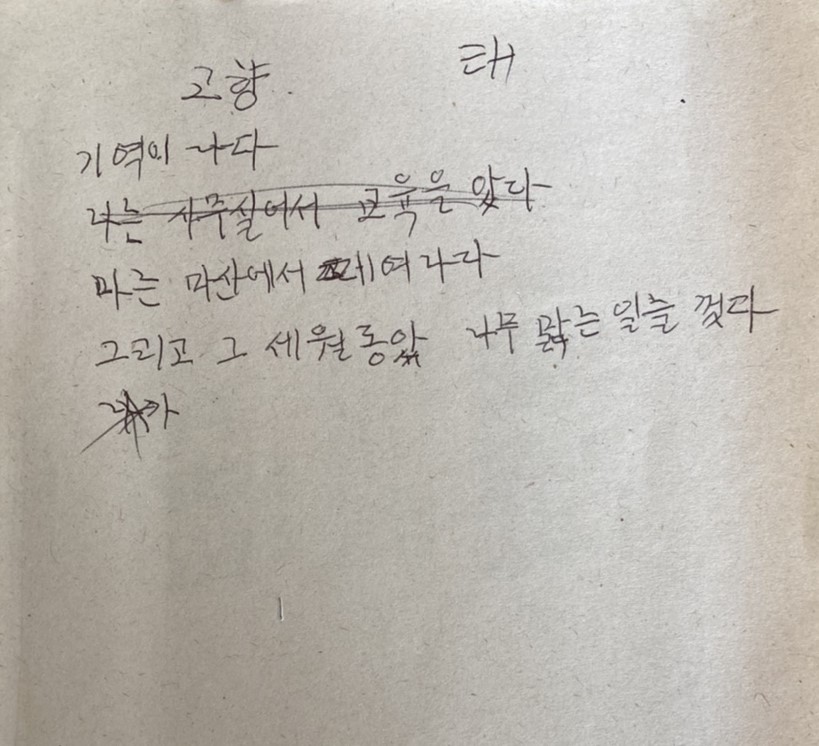 고향 태
기역이 나다
나는 사무실어서 교육을 았다
마는 마산에서 테여 나다
그리고 그 세월동안 너무 많는 일늘 겄다